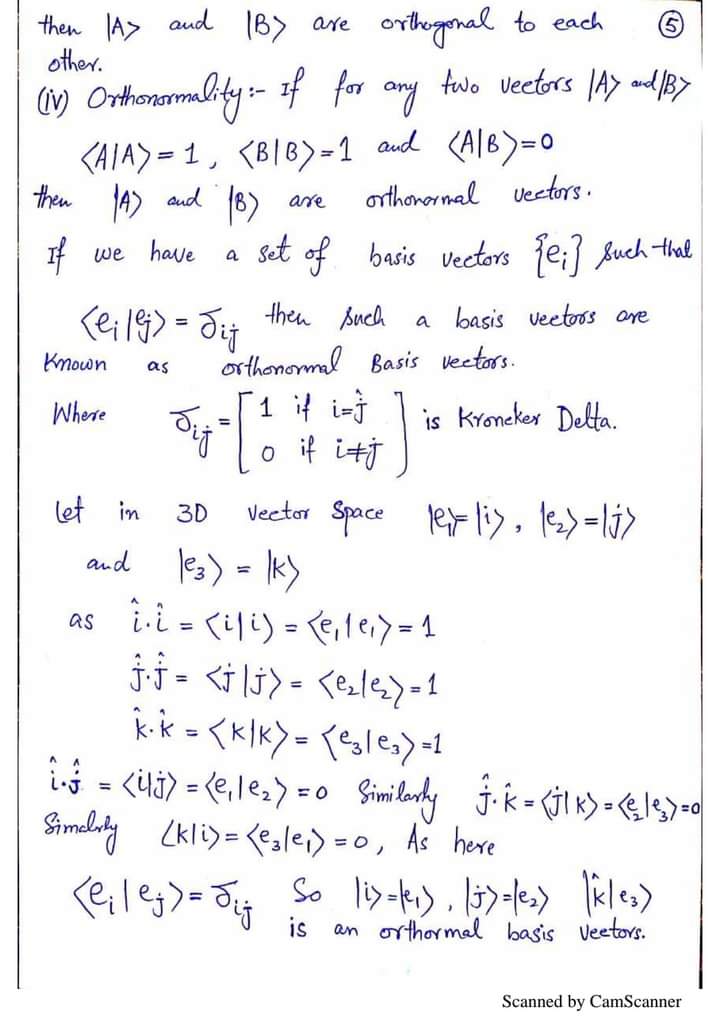 then |A> and |B> are orthogonal to each ⑤
other.
(iv) Orthonormality:- If for any two vectors |A> and |B>
<A|A> = 1, <B|B> = 1 and <A|B> = 0
then |A> and |B> are orthonormal vectors.
If we have a set of basis vectors {ei} such that
<ei|ej> = δij then such a basis vectors are
Known as orthonormal Basis vectors.
Where δij = [1 if i=j
0 if i≠j] is Kroneker Delta.
Let in 3D vector space |e1>=|i>, |e2>=|j>
and |e3> = |k>
as î.î = <i|i> = <e1|e1> = 1
ĵ.ĵ = <j|j> = <e2|e2> = 1
k̂.k̂ = <k|k> = <e3|e3> = 1
î.ĵ = <i|j> = <e1|e2> = 0 Similarly ĵ.k̂ = <j|k> = <e2|e3> = 0
Simalrly <k|i> = <e3|e1> = 0, As here
<ei|ej> = δij So |i>=|e1>, |j>=|e2> |k̂|e3>
is an orthormal basis vectors.
Scanned by CamScanner